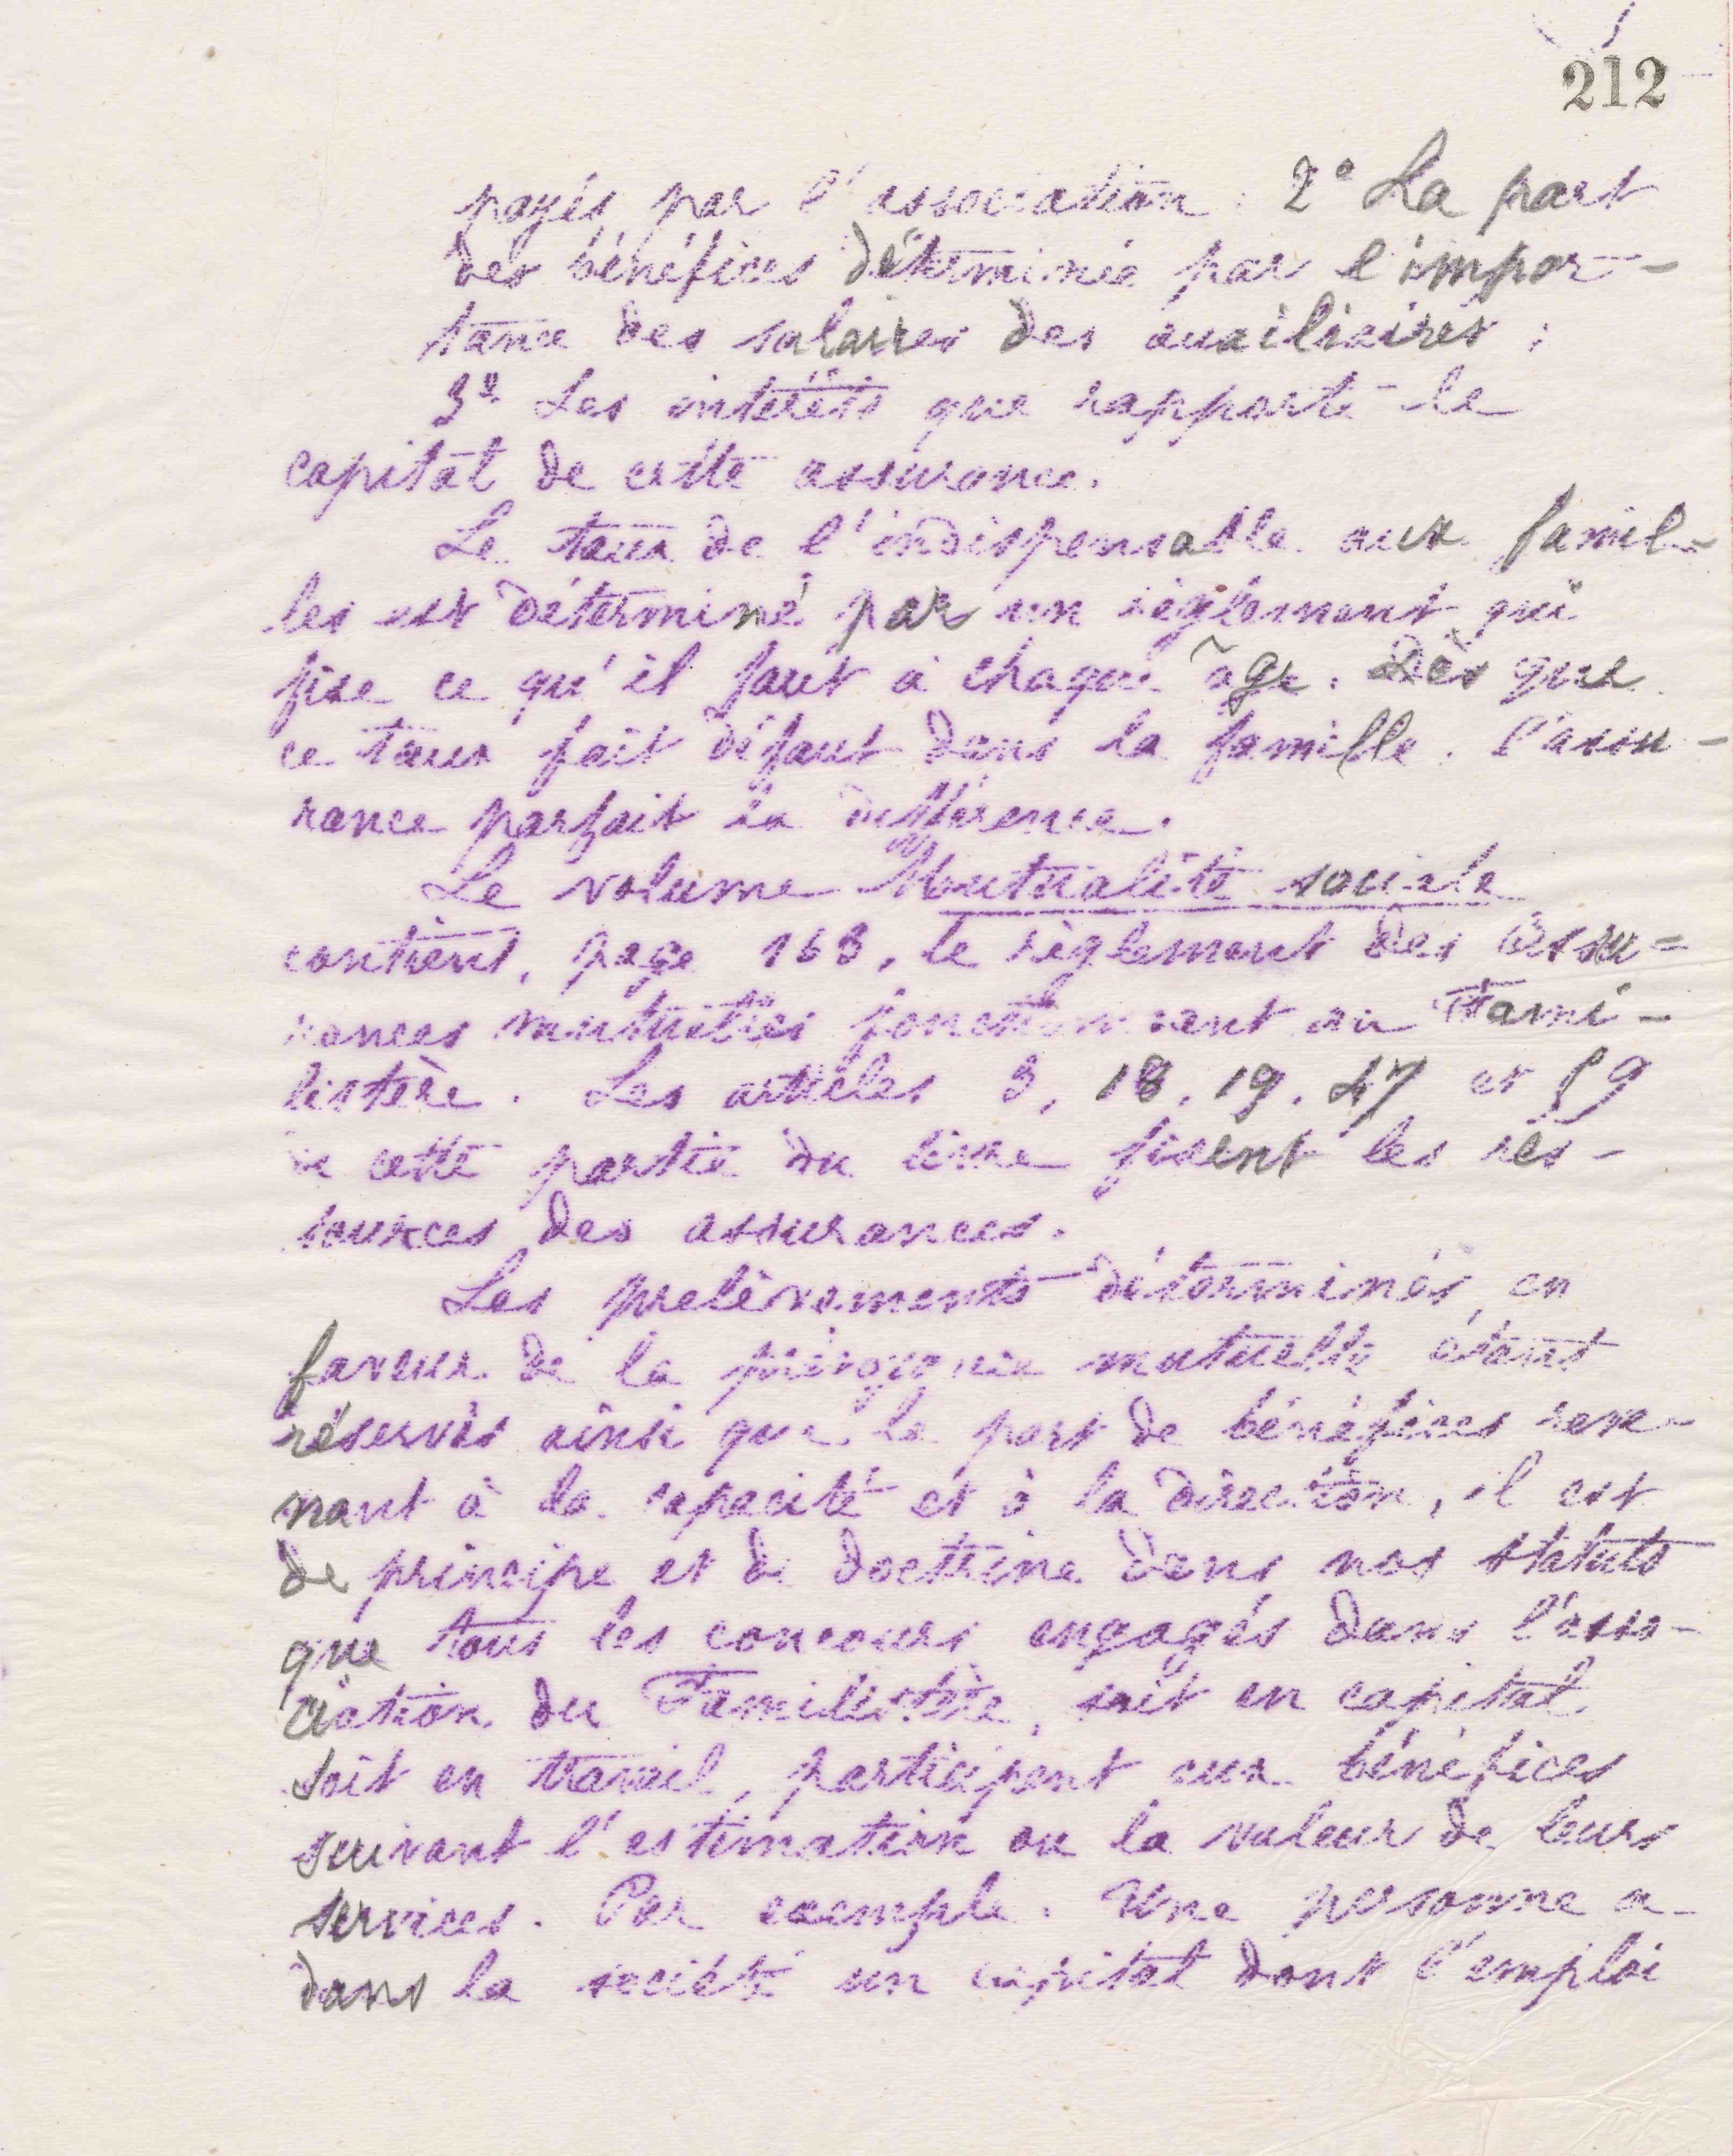 212
payés par l'association. 2° La part
des bénéfices déterminée par l'impor-
tance des salaires des auxiliaires ;
3° Les intérêts que rapporte le
capital de cette assurance.
Le taux de l'indispensable aux famil-
les est déterminé par un règlement qui
fixe ce qu'il faut à chaque âge. Dès que
ce taux fait défaut dans la famille, l'assu-
rance parfait la différence.
Le volume Mutualité sociale
contient, page 163, le règlement des assu=
rances mutuelles fonctionnant au Fami-
listère. Les articles 3, 18, 19, 47 et 59
de cette partie du livre fixent les res-
sources des assurances.
Les prélèvements déterminés en
faveur de la prévoyance mutuelle étant
réservés ainsi que la part de bénéfices reve-
nant à la capacité et à la direction, il est
de principe et de doctrine dans nos statuts
que tous les concours engagés dans l'asso-
ciation du Familistère, soit en capital
soit en travail, participent aux bénéfices
suivant l'estimation ou la valeur de leurs
services. Par exemple. Une personne a
dans la société un capital dont l'emploi